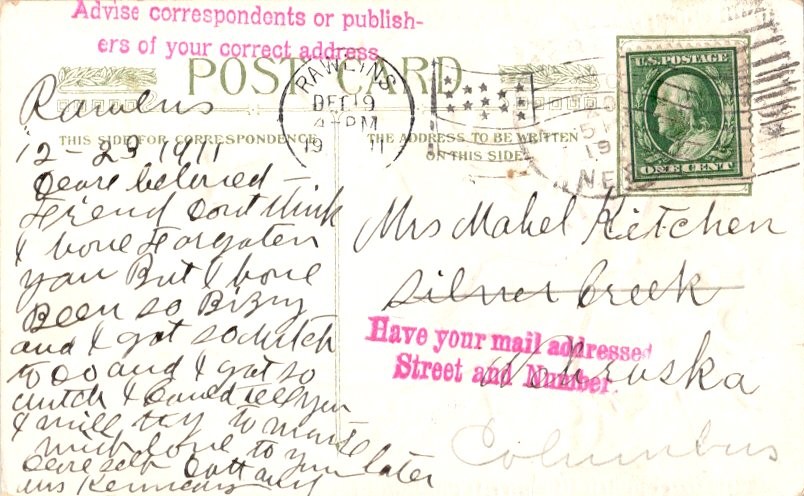 Advise correspondents or publish-
ers of your correct address.
POST CARD
RAWLINS
DEC 19
4 PM
19 11
THIS SIDE FOR CORRESPONDENCE
THE ADDRESS TO BE WRITTEN
ON THIS SIDE
U.S. POSTAGE
ONE CENT
NEB
Rawlins
12-23 1911
Deare beloved
Friend Dont think
I have Forgoten
you But I have
Been so Bizzy
and I got so mutch
to do and I got so
mutch I Could tell you
I will try to
mich love to you later
Mrs Kennedy
Mrs Mabel Kitchen
Silver Creek
Nebraska
Have your mail addressed
Street and Number.
Columbus